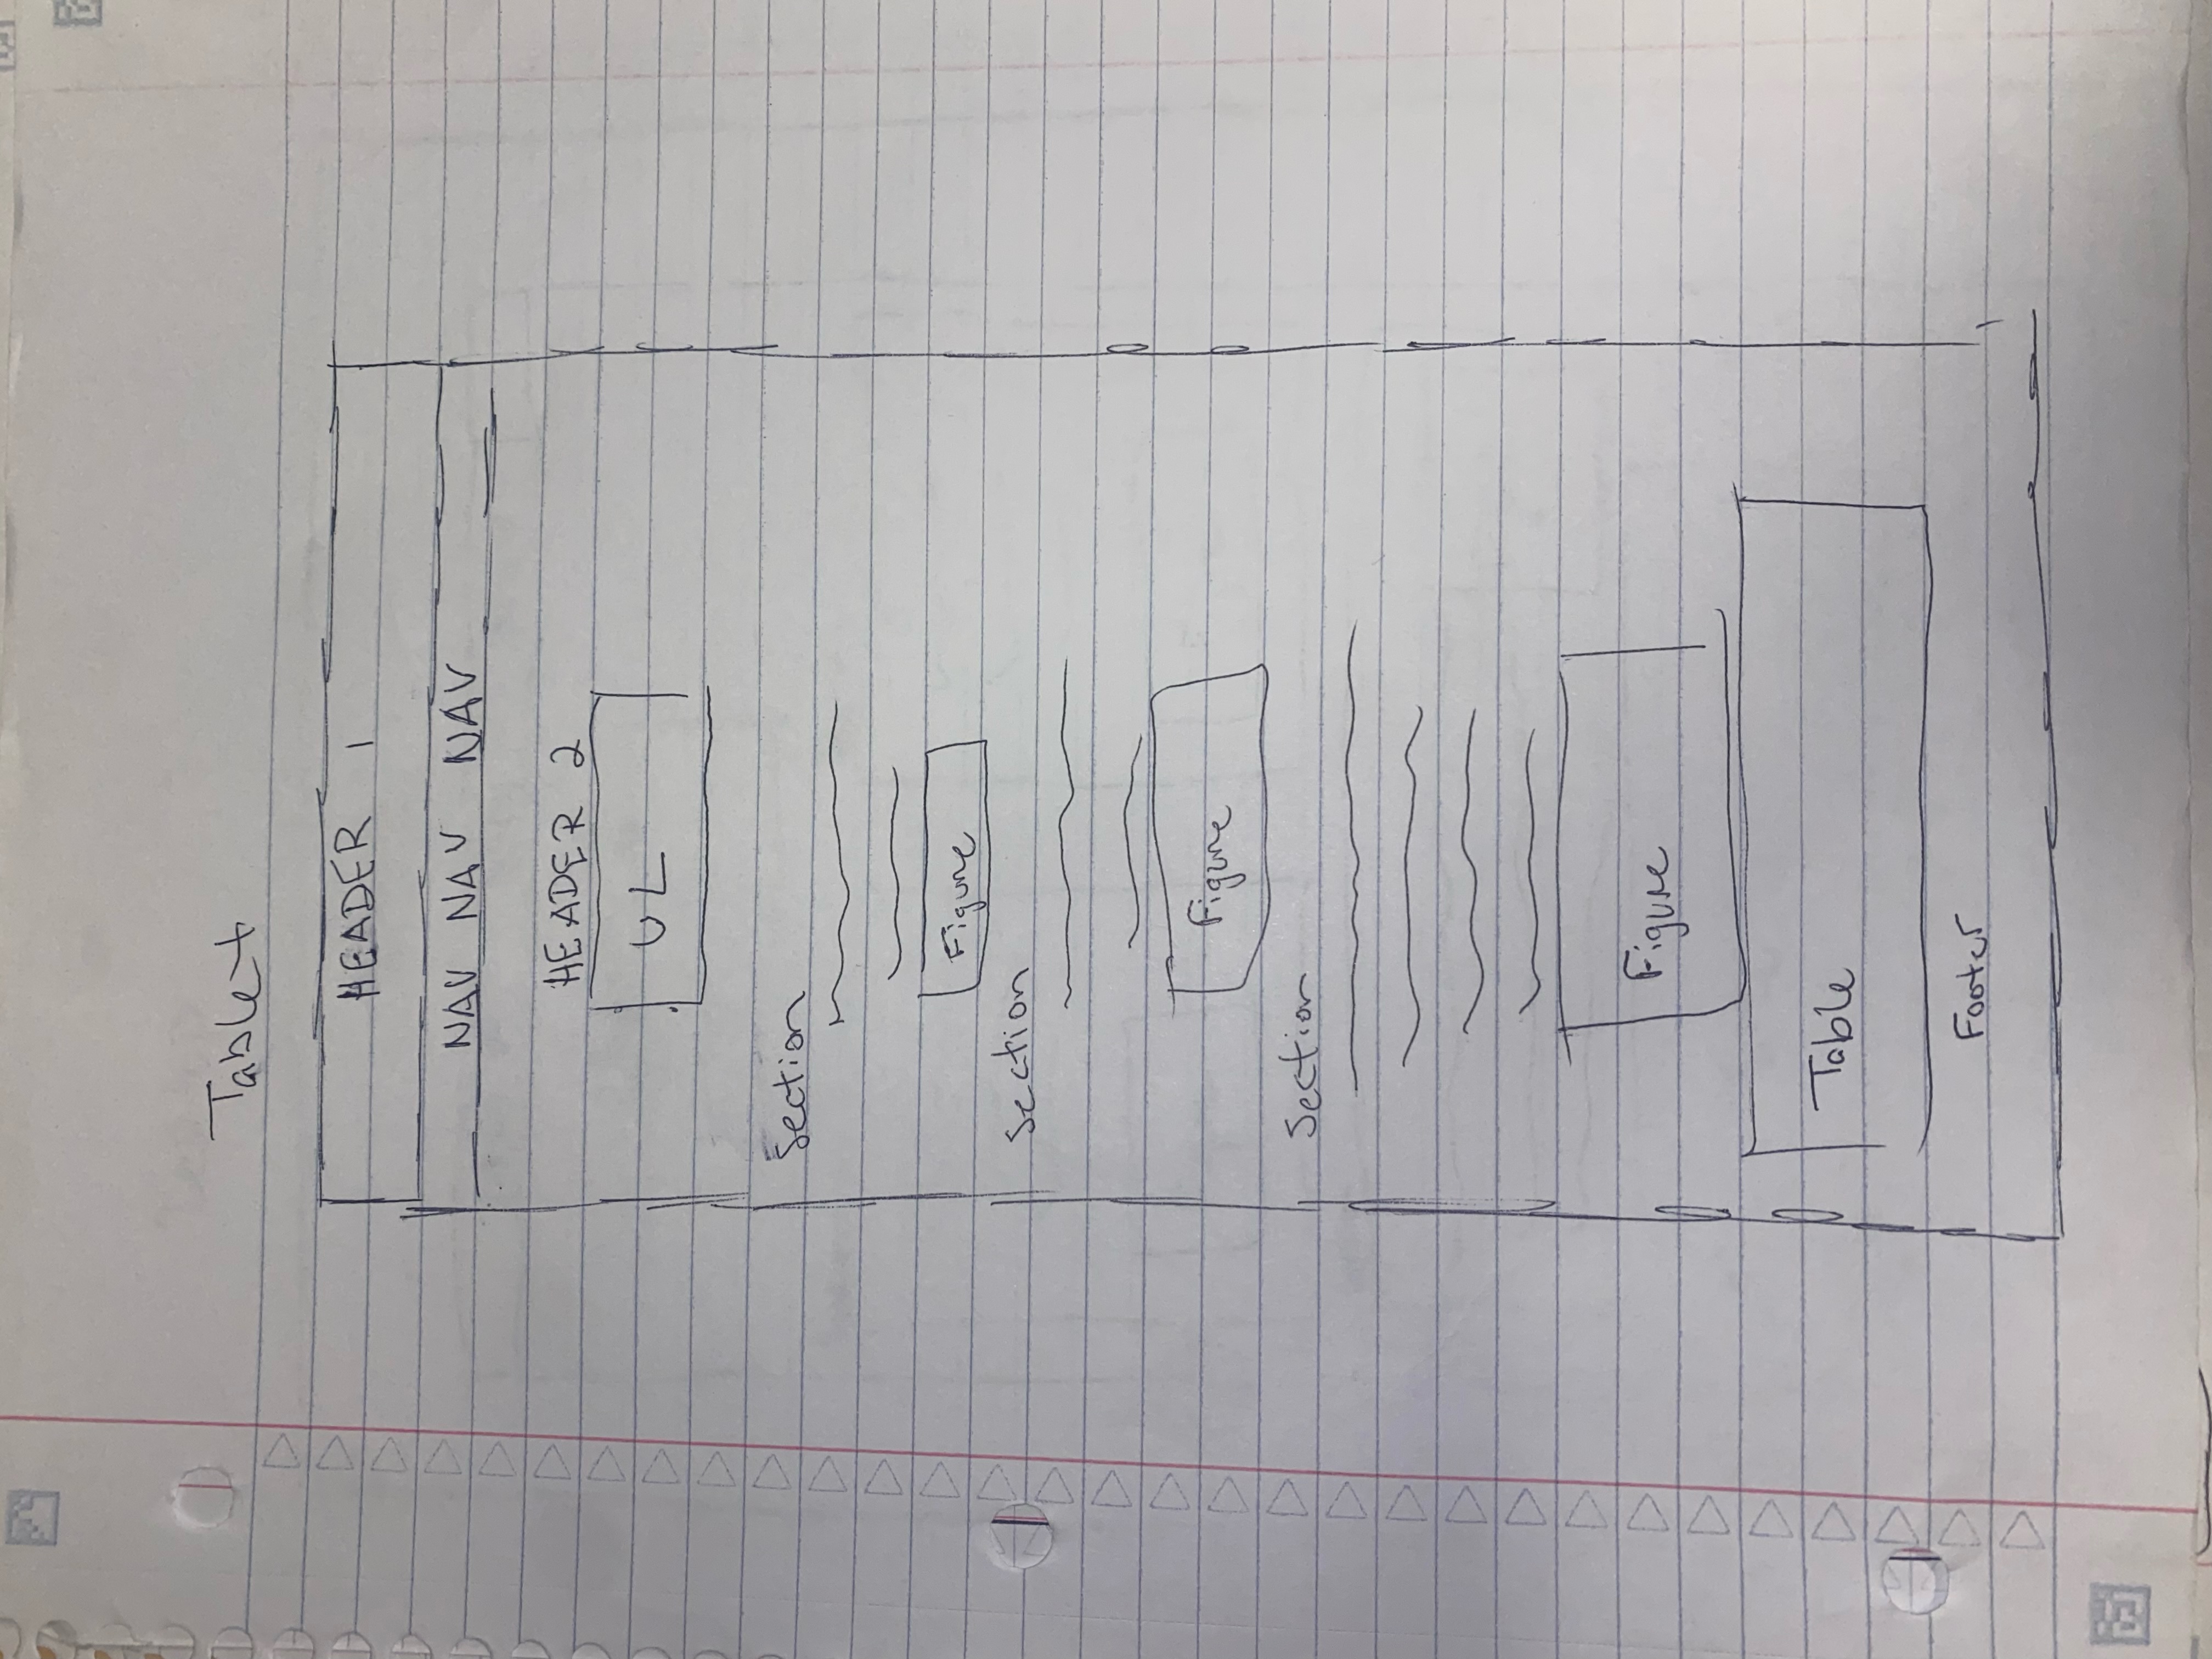 Tablet
HEADER 1
NAV NAV NAV
HEADER 2
UL
Section
Figure
Section
Figure
Section
Figure
Table
Footer